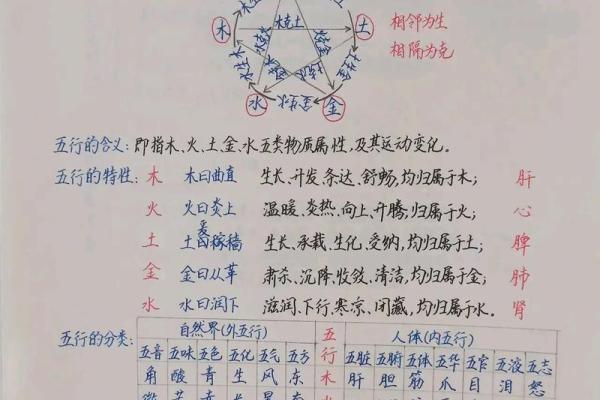 木克土
木
土
相邻为生
相隔为克
水
金生水
金
五行的含义:即指木、火、土、金、水五类物质属性,及其运动变化。
五行的特性:木 木曰曲直 生长、升发、条达、舒畅,均归属于木; 肝
火 火曰炎上 温暖、炎热、向上、升腾,归属于火; 心
爰
土 土曰稼穑 生长、承载、生化、受纳,均归属于土; 脾
金 金曰从革 肃杀、沉降、收敛、清洁,均归属于金; 肺
水 水曰润下 滋润、下行、寒凉、闭藏,均归属于水。 肾
五行的分类: 自然界(外五行) 五行 人体(内五行)
五音 五味 五色 五化 五气 五方 五脏 五腑 五体 五华 五官 五液 五志
角 酸 青 生 风 东 木 肝 胆 筋 爪 目 泪 怒